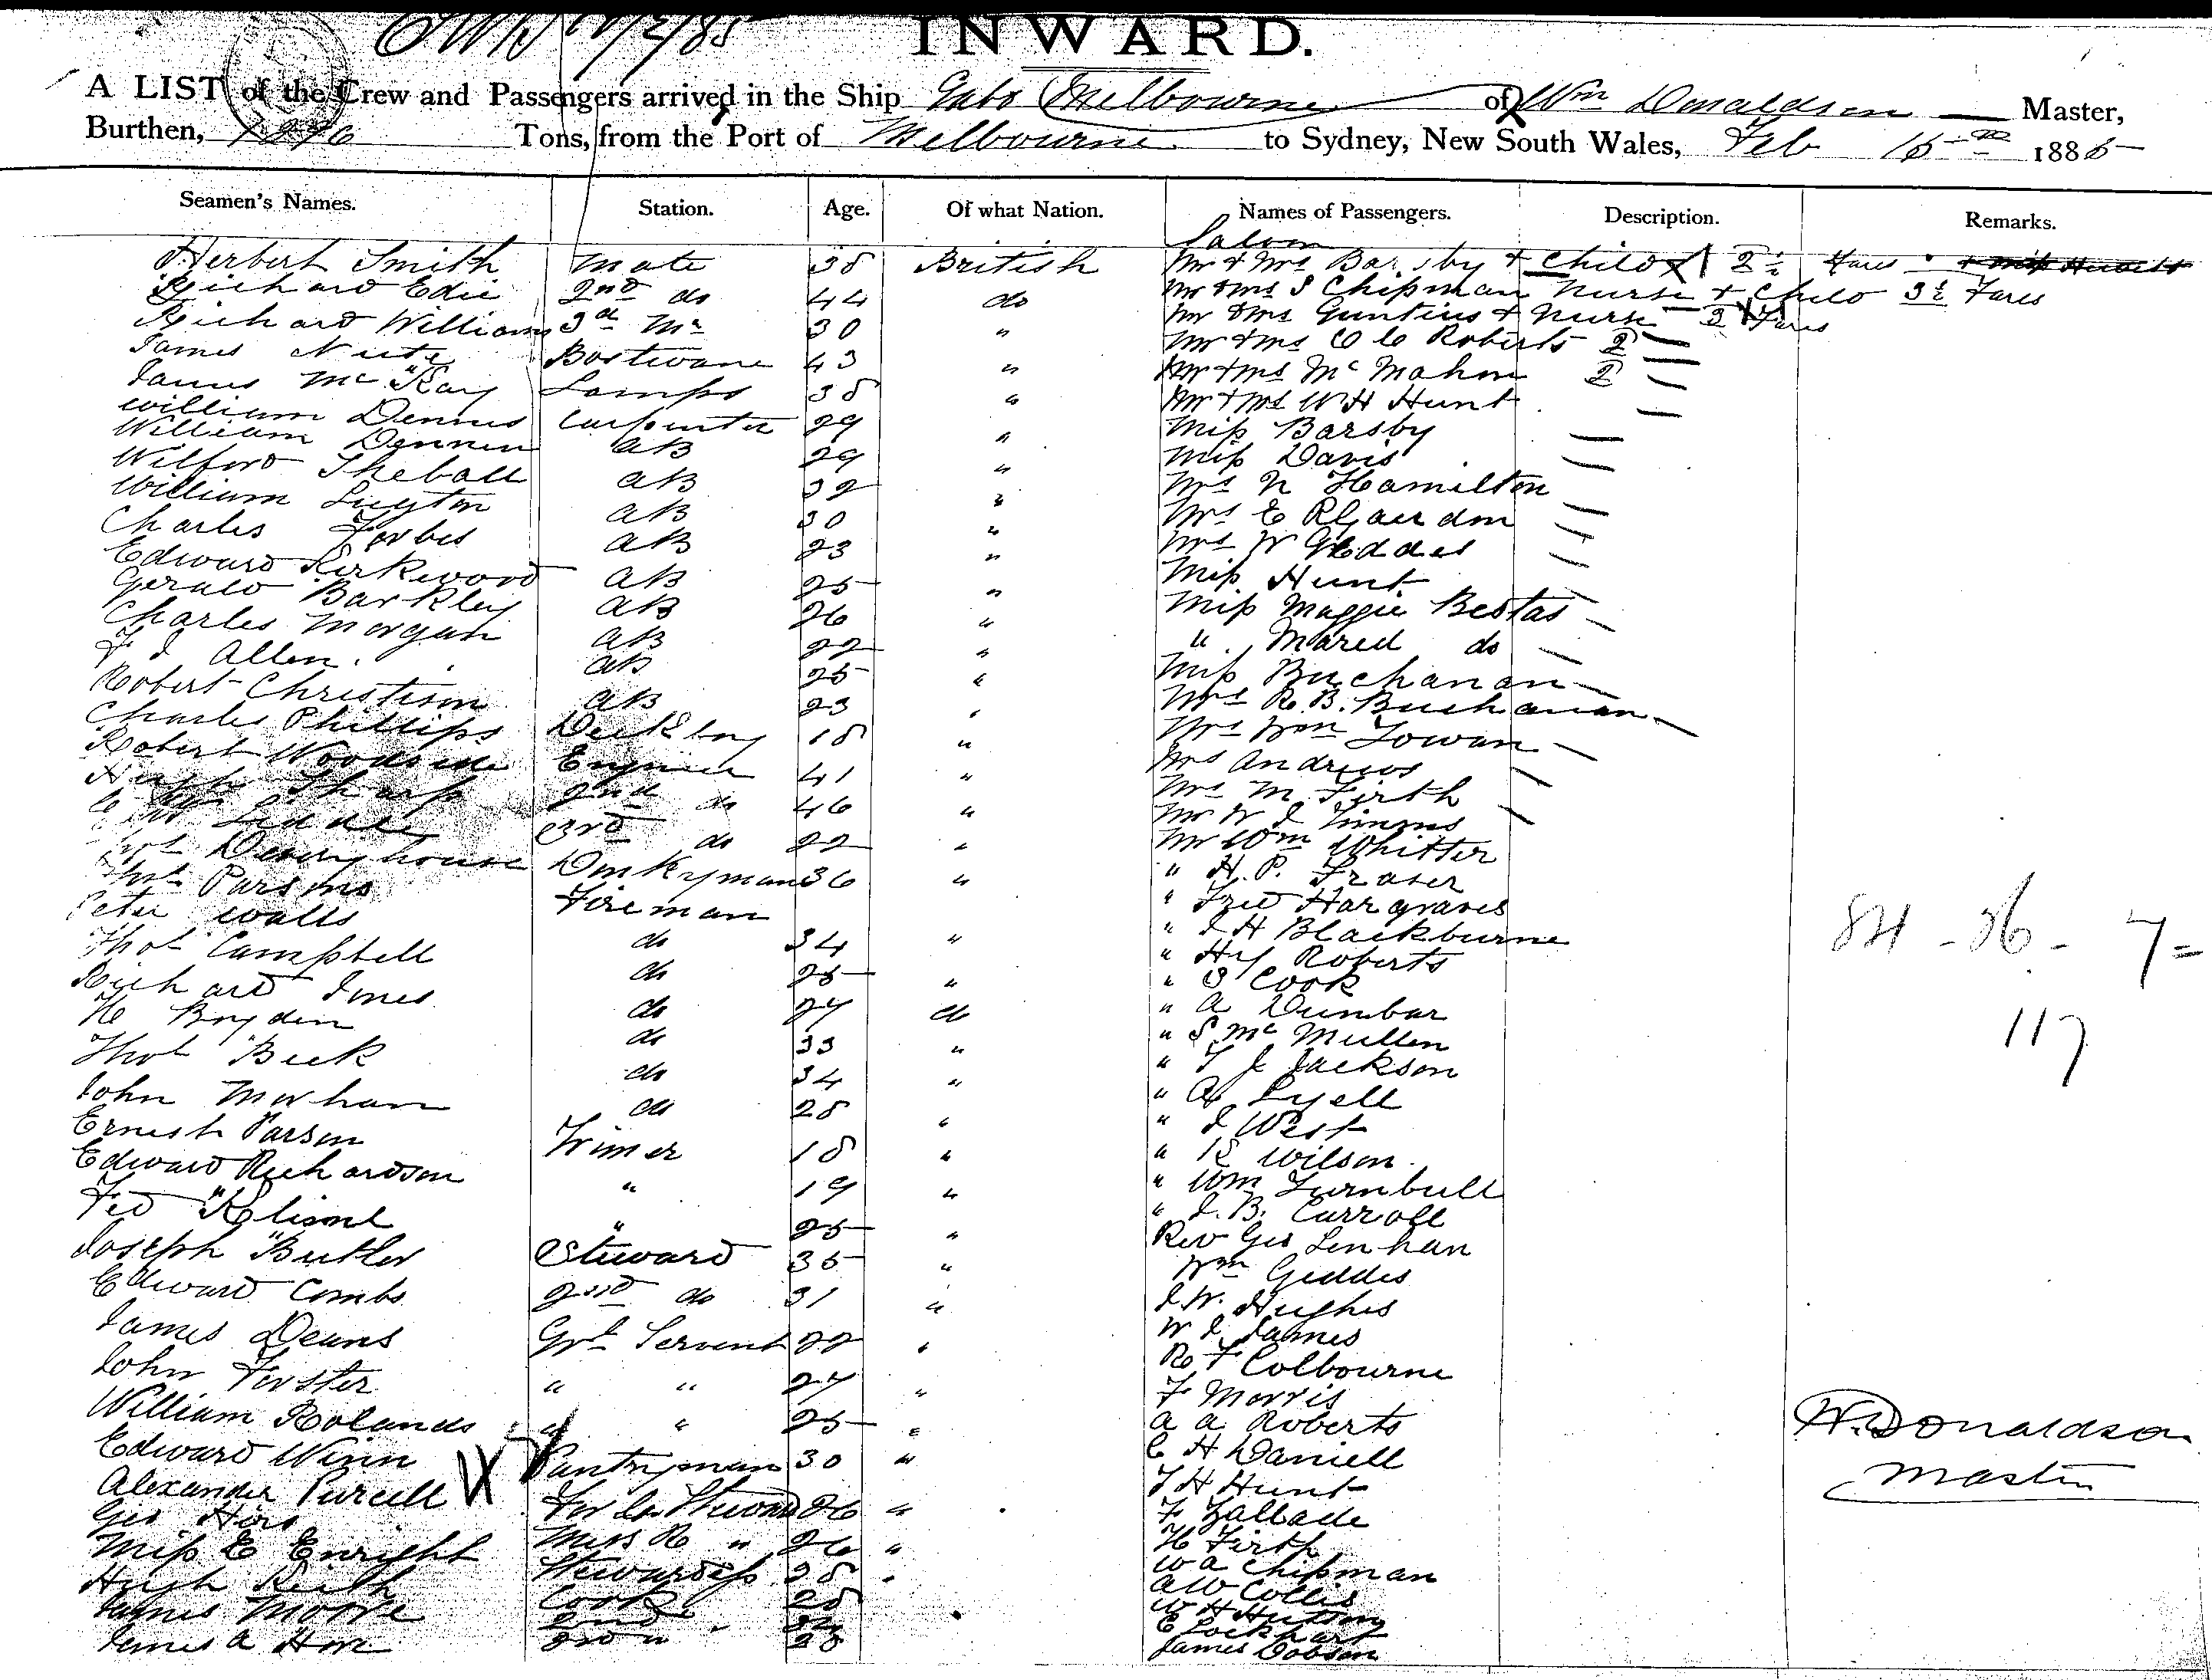 INWARD.
A LIST of the Crew and Passengers arrived in the Ship Gabo Melbourne of Wm Donaldson Master,
Burthen, Tons, from the Port of Melbourne to Sydney, New South Wales, Feb 188
Seamen's Names. Station. Age. Of what Nation. Names of Passengers. Description. Remarks.
Saloon
Herbert Smith Mate 38 British Mr & Mrs Barsby & Child 2½ Fares
Richard Edie 2nd do 44 do Mr & Mrs S Chipman Nurse & Child 3½ Fares
Richard Williams 3rd Mr 30 " Mr & Mrs & Nurse 3 Fares
James Bostwane 43 " Mr & Mrs C C Roberts 2
James McKay Lamps 38 " Mr & Mrs McMahon 2
William Dennis Carpenter 29 " Mr & Mrs W H Hunt
William AB 29 " Miss Barsby
Wilford AB 32 " Miss Davis
William AB 30 " Mrs N Hamilton
Charles Forbes AB 23 " Mrs E
Edward Kirkwood AB 25 " Mrs W Geddes
Gerald Barkley AB 26 " Miss Hunt
Charles Morgan AB 22 " Miss Maggie Bestas
F J Allen AB 25 " " do
Robert Christison AB 23 " Miss Buchanan
Charles Phillips Deck boy 18 " Mrs R. B. Buchanan
Robert Woodside Engineer 41 " Mrs Wm Towan
Hugh Sharp 2nd do 46 " Mrs Andrews
3rd do 22 " Mrs M Firth
Donkeyman 36 " Mr W J
Thos Parsons Fireman Mr Wm Whitter
Peter Walls do 34 " " H. P. Fraser
Thos Campbell do 25 " " Fred Hargraves
Richard Jones do 27 do " J H Blackburne
H Boyden do 33 " " Hy Roberts
Thos Beck do 34 " " S Cook
John do 28 " " A Dunbar
Ernest Parson Trimer 18 " " S McMullen
Edward Richardson " 19 " " T J Jackson
Fred " 25 " " A Lyell
Joseph Butler Steward 35 " " J West
Edward Combs 2nd do 31 " " R Wilson
James Deans Grl Servent 22 " " Wm Turnbull
John Forster " " 27 " " J. B. Carroll
William Rolands " " 25 " Rev Geo Lenhan
Edward Winn Pantryman 30 " Wm Geddes
Alexander Purcell 26 " J W. Hughes
Geo Miss R " 26 " W J James
Miss E Enright Stewardess 28 " R F Colbourne
Hugh Keith Cook 28 F Morris
James Moore 2nd " A A Roberts
James A 3rd " 20 C H Daniell
T H Hunt
F
H Firth
W A Chipman
A W Collis
W H
E Lockhart
James Dobson
84 - 86 - 7 =
117
W. Donaldson
Master